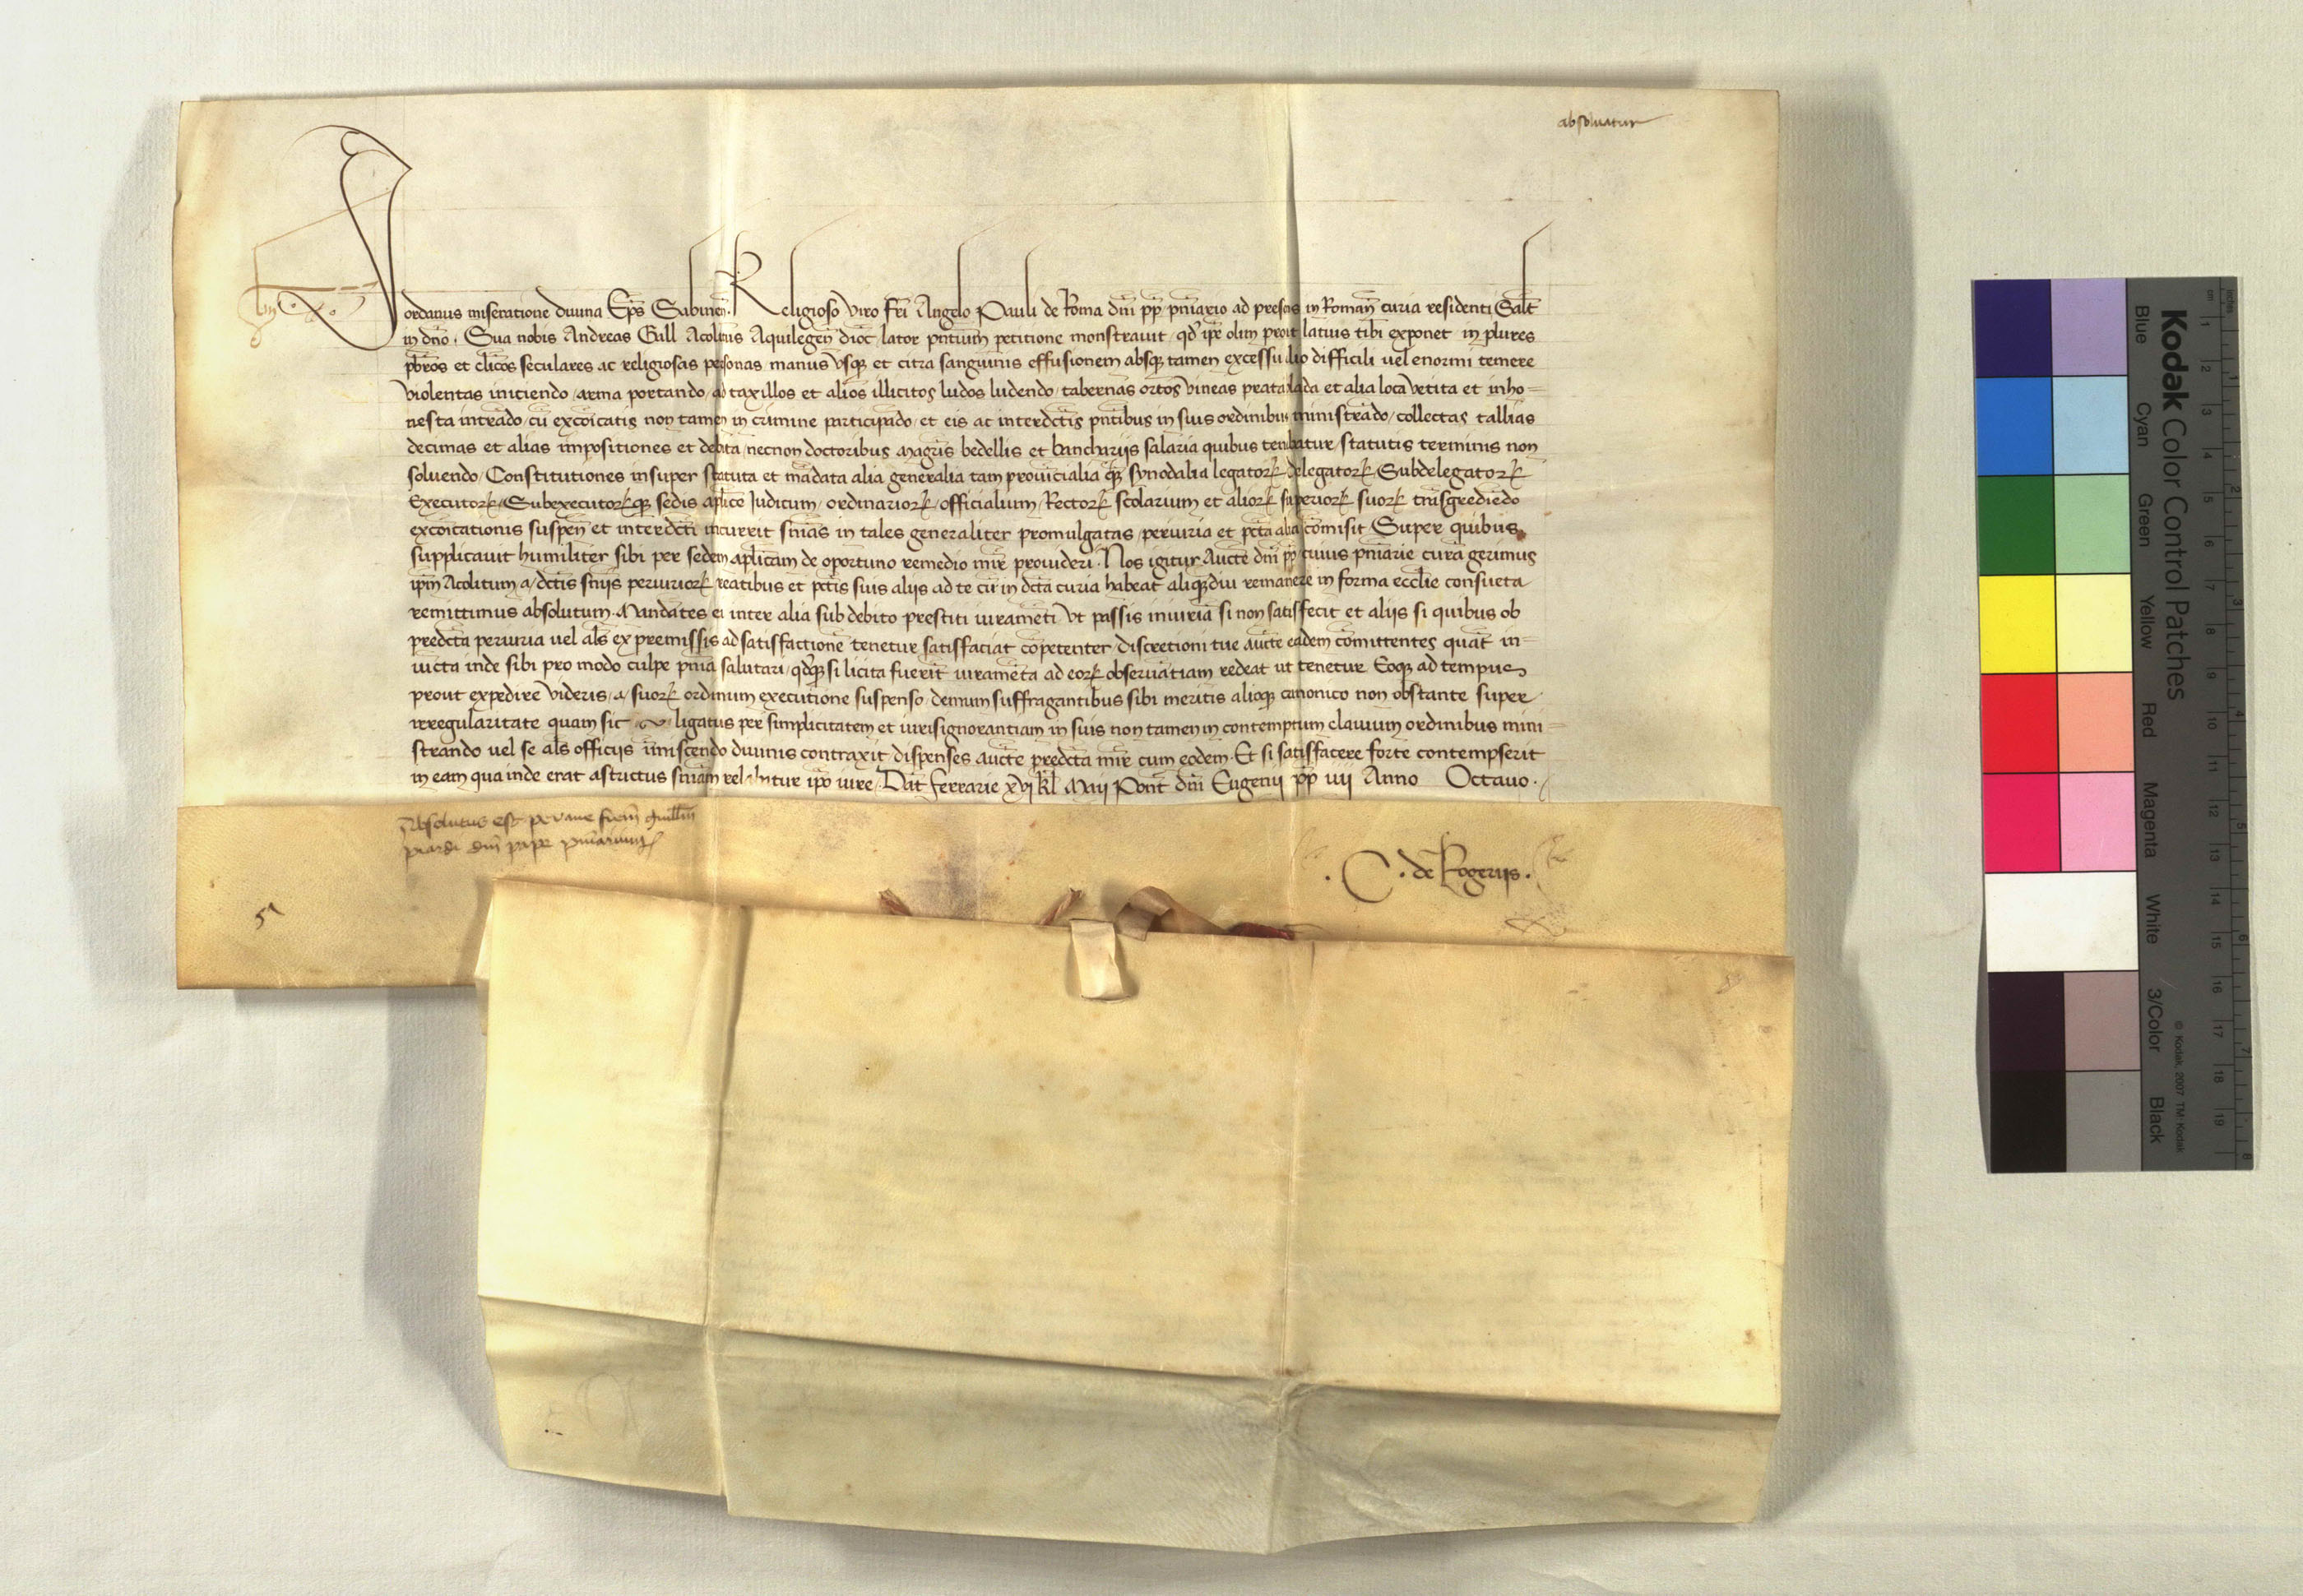 absoluatur
Jordanus miseratione diuina Ep̄s Sabineñ. Religioso viro fr̄i Angelo Pauli de Roma dn̄i pp̄ pn̄iario ad presens in Romañ curia residenti Salt̄
in dn̄o. Sua nobis Andreas Gall Acolitus Aquilegeñ dioc̄ lator pn̄tium petitione monstrauit, qd̄ ip̄e olim prout latius tibi exponet in plures
pb̄ros et cl̄icos seculares ac religiosas personas manus vsq̨ et citra sanguinis effusionem absq̨ tamen excessu alio difficili uel enormi temere
violentas iniciendo, arma portando, ad taxillos et alios illicitos ludos ludendo, tabernas ortos vineas prata et alia loca vetita et inho-
nesta intrādo, cū excōicatis non tamen in crimine participādo, et eis ac interdc̄tis pn̄tibus in suis ordinibus ministrādo, collectas tallias
decimas et alias impositiones et debita, necnon doctoribus magr̄is bedellis et bancharijs salaria quibus tenebatur, statutis terminis non
soluendo, Constitutiones insuper statuta et mādata alia generalia tam prouīcialia q̨ȝ synodalia legatorꝝ delegatorꝝ Subdelegatorꝝ
Executorꝝ, Subexecutorꝝq̨ sedis ap̄lice Judicum, ordinariorꝝ, officialium, Rectorꝝ scolarium et aliorꝝ superiorꝝ suorꝝ trāsgrediēdo
excōicationis suspeñ et interdc̄ti incurrit sn̄ias in tales generaliter promulgatas, periuria et pc̄ta alia cōmisit Super quibus
supplicauit humiliter sibi per sedem ap̄licam de oportuno remedio mīr prouideri. Nos igitur Auct̄e dn̄i pp̄ cuius pn̄iarie curā gerimus
ip̄m Acolitum a, dc̄tis sn̄iis periuriorꝝ reatibus et pc̄tis suis aliis ad te cū in dc̄ta curia habeat aliq̨ȝdiu remanere in forma eccl̄ie consueta
remittimus absolutum. Mandātes ei inter alia sub debito prestiti iuramēti vt passis iniuriā si non satisfecit et aliis si quibus ob
predc̄ta periuria uel al̄s ex premissis ad satisfactionē tenetur satisfaciat cōpetenter, discretioni tue auct̄e eadem cōmittentes quat̄ in-
iūcta inde sibi pro modo culpe pn̄ia salutari, qd̄q̨ȝ si licita fuerīt iuramēta ad eorꝝ obseruātiam redeat ut tenetur Eoq̨ ad tempus
prout expedire videris, a, suorꝝ ordinum executione suspenso, demum suffragantibus sibi meritis alioq̨ canonico non obstante super
irregularitate quam sic ligatus per simplicitatem et iuris ignorantiam in suis non tamen in contemptum clauium ordinibus mini-
strando uel se al̄s officiis īmiscendo diuinis contraxit dispenses auct̄e predc̄ta mīr cum eodem. Et si satisfacere forte contempserit
in eam qua inde erat astrictus sn̄iam relabatur ip̄o iure. Dat̄ Ferrarie xvj kl̄ Maij Pont̄ dn̄i Eugenij pp̄ iiij Anno Octauo.
Absolutus est per me frem̄ guill̄m
dn̄i pape pn̄iarium
. C. de Rogeriis.
Kodak Color Control Patches
Blue Cyan Green Yellow Red Magenta White 3/Color Black
© Kodak, 2007 TM: Kodak
inches 1 2 3 4 5 6 7 8
cm 1 2 3 4 5 6 7 8 9 10 11 12 13 14 15 16 17 18 19